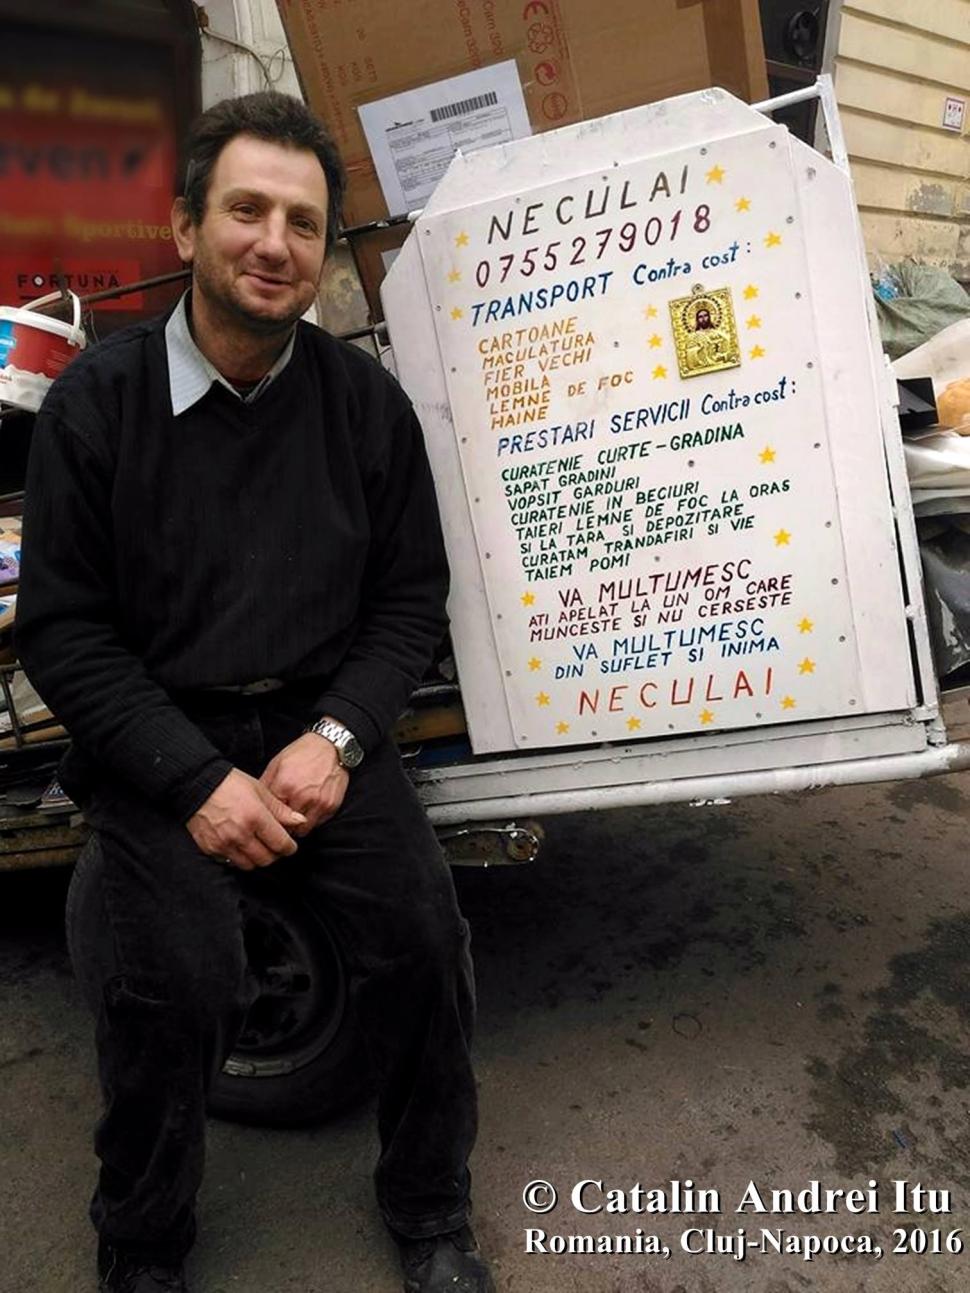 even
Sportive
FORTUNA
NECULAI
0755279018
TRANSPORT Contra cost:
CARTOANE
MACULATURA
FIER VECHI
MOBILA
LEMNE DE FOC
HAINE
PRESTARI SERVICII Contra cost:
CURATENIE CURTE-GRADINA
SAPAT GRADINI
VOPSIT GARDURI
CURATENIE IN BECIURI
TAIERI LEMNE DE FOC LA ORAS
SI LA TARA SI DEPOZITARE
CURATAM TRANDAFIRI SI VIE
TAIEM POMI
VA MULTUMESC
ATI APELAT LA UN OM CARE
MUNCESTE SI NU CERSESTE
VA MULTUMESC
DIN SUFLET SI INIMA
NECULAI
© Catalin Andrei Itu
Romania, Cluj-Napoca, 2016